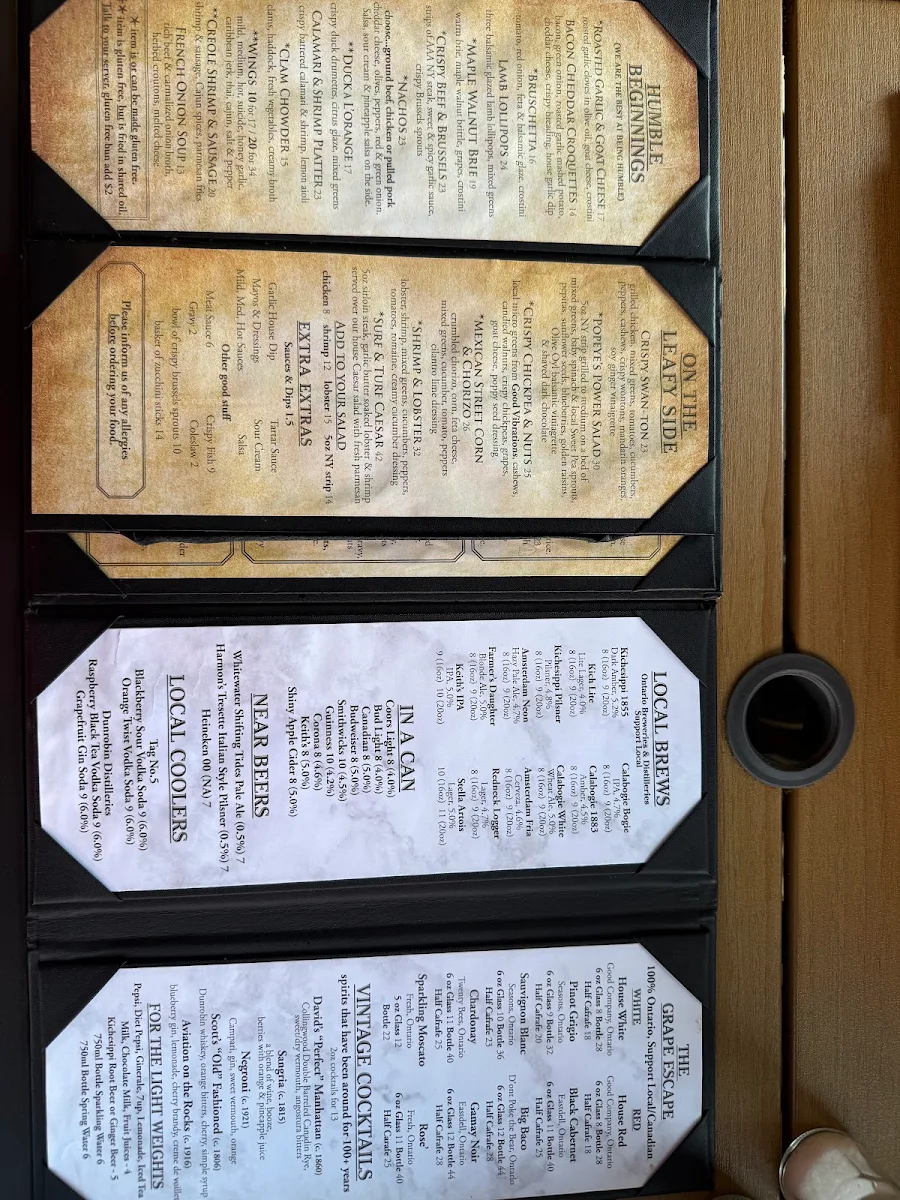 HUMBLE
BEGINNINGS
(WE ARE THE BEST AT BEING HUMBLE)
*ROASTED GARLIC & GOAT CHEESE 17
roast garlic cloves in olive oil, goat cheese, crostini
BACON CHEDDAR CROQUETTES 14
bacon, green onion, roasted garlic, mashed potato,
cheddar cheese, crispy breading, house garlic dip
*BRUSCHETTA 16
tomato, red onion, feta & balsamic glaze, crostini
LAMB LOLLIPOPS 24
three balsamic glazed, lamb lollipops, mixed greens
*MAPLE WALNUT BRIE 19
warm brie, maple, walnut brittle, grapes, crostini
*CRISPY BEEF & BRUSSELS 23
strips of AAA NY steak, sweet & spicy garlic sauce,
crispy Brussels sprouts
*NACHOS 23
choose...ground beef, chicken or pulled pork
cheddar cheese, olives, peppers, red & green onion.
Salsa, sour cream & pineapple salsa on the side.
**DUCK A L'ORANGE 17
crispy duck drumettes, citrus glaze, mixed greens
CALAMARI & SHRIMP PLATTER 23
crispy battered calamari & shrimp, lemon aioli
*CLAM CHOWDER 15
clams, haddock, fresh vegetables, creamy broth
**WINGS 10 for 17 / 20 for 34
mild, medium, hot, suicide, honey garlic,
caribbean jerk, thai, cajun, salt & pepper
**CREOLE SHRIMP & SAUSAGE 21
shrimp & sausage, Cajun spices, parmesan frites
FRENCH ONION SOUP 13
rich beef & carmalized onion broth,
herbed croutons, melted cheese
* item is or can be made gluten free.
** item is gluten free, but is fried in shared oil.
Talk to your server, gluten free bun add $2
ON THE
LEAFY SIDE
CRISPY SWAN TON 23
grilled chicken, mixed greens, tomatoes, cucumbers,
peppers, cashews, crispy wontons, mandarin oranges,
soy ginger vinaigrette
*POPEYE'S POWER SALAD 30
5oz NY strip grilled to medium on a bed of
mixed greens, baby spinach & local Sweet Pea sprouts,
pepitas, sunflower seeds, blueberries, golden raisins,
Olive Oyl balsamic vinaigrette
& shaved dark chocolate
*CRISPY CHICKPEA & NUTS 25
local micro greens from Good Vibrations, cashews,
candied walnuts, crispy chickpeas, grapes,
goat cheese, poppy seed dressing
*MEXICAN STREET CORN
& CHORIZO 26
crumbled chorizo, corn, feta cheese,
mixed greens, cucumber, tomato, peppers,
cilantro lime dressing
*SHRIMP & LOBSTER 32
lobster, shrimp, mixed greens, cucumbers, peppers,
tomatoes, romaine, creamy cucumber dressing
*SURF & TURF CAESAR 42
5oz sirloin steak, garlic butter soaked lobster & shrimp
served over our house Caesar salad with fresh parmesan
ADD TO YOUR SALAD
chicken 8 shrimp 12 lobster 15 5oz NY strip 14
EXTRA EXTRAS
Sauces & Dips 1.5
Garlic House Dip Tartar Sauce
Mayos & Dressings Sour Cream
Mild, Med, Hot Sauces Salsa
Other good stuff
Meat Sauce 6 Crispy Hali 9
Gravy 2 Coleslaw 2
bowl of crispy brussels sprouts 10
basket of zucchini sticks 14
Please inform us of any allergies
before ordering your food.
LOCAL BREWS
Ontario Breweries & Distilleries
Support Local
Kichesippi 1855 Calabogie Bogie
Dark Amber, 5.2% IPA 4.7%
8 (16oz) 9 (20oz) 8 (16oz) 9 (20oz)
Kich Lite Calabogie 1883
Lite Lager, 4.0% Amber, 4.5%
8 (16oz) 9 (20oz) 8 (16oz) 9 (20oz)
Kichesippi Pilsner Calabogie White
Pilsner, 4.8% Wheat Ale, 5.0%
8 (16oz) 9 (20oz) 8 (16oz) 9 (20oz)
Amsterdam Neon Amsterdam Fria
Hazy Pale Ale, 4.7% Cerveza, 4.6%
8 (16oz) 9 (20oz) 8 (16oz) 9 (20oz)
Farmer's Daughter Redneck Logger
Blonde Ale, 5.0% Lager, 4.7%
8 (16oz) 9 (20oz) 8 (16oz) 9 (20oz)
Keith's IPA Stella Artois
IPA, 5.0% Lager, 5.0%
9 (16oz) 10 (20oz) 10 (16oz) 11 (20oz)
IN A CAN
Coors Light 8 (4.0%)
Bud Light 8 (4.0%)
Canadian 8 (5.0%)
Budweiser 8 (5.0%)
Smithwicks 10 (4.5%)
Guinness 10 (4.2%)
Corona 8 (4.6%)
Keith's 8 (5.0%)
Shiny Apple Cider 8 (5.0%)
NEAR BEERS
Whitewater Shifting Tides Pale Ale (0.5%) 7
Harmon's Tresette Italian Style Pilsner (0.5%) 7
Heineken 00 (NA) 7
LOCAL COOLERS
Tag No.5
Blackberry Sour Vodka Soda 9 (6.0%)
Orange Twist Vodka Soda 9 (6.0%)
Dunrobin Distilleries
Raspberry Black Tea Vodka Soda 9 (6.0%)
Grapefruit Gin Soda 9 (6.0%)
THE
GRAPE ESCAPE
100% Ontario, Support Local/Canadian
WHITE RED
House White House Red
Good Company, Ontario Good Company, Ontario
6 oz Glass 8 Bottle 28 6 oz Glass 8 Bottle 28
Half Cafrafe 18 Half Cafrafe 18
Pinot Grigio Black Cabernet
Seasons, Ontario Eastdell, Ontario
6 oz Glass 9 Bottle 32 6 oz Glass 11 Bottle 40
Half Cafrafe 20 Half Cafrafe 25
Sauvignon Blanc Big Baco
Seasons, Ontario D'ont Poke the Bear, Ontario
6 oz Glass 10 Bottle 36 6 oz Glass 12 Bottle 44
Half Cafrafe 23 Half Cafrafe 28
Chardonnay Gamay Noir
Twenty Bees, Ontario Eastdell, Ontario
6 oz Glass 11 Bottle 40 6 oz Glass 12 Bottle 44
Half Cafrafe 25 Half Cafrafe 28
Sparkling Moscato Rose'
Fresh, Ontario Fresh, Ontario
5 oz Glass 12 6 oz Glass 11 Bottle 40
Bottle 22 Half Cafrafe 25
VINTAGE COCKTAILS
spirits that have been around for 100+ years
2oz cocktails for 13
David's "Perfect" Manhattan (c. 1860)
Collingwood Double Barreled Canadian Rye,
sweet/dry vermouth, angostura bitters
Sangria (c. 1815)
a blend of wine, booze,
berries with orange & pineapple juice
Negroni (c. 1921)
Campari, gin, sweet vermouth, orange
Scott's "Old" Fashioned (c. 1806)
Dunrobin whiskey, orange bitters, cherry, simple syrup
Aviation on the Rocks (c. 1916)
blueberry gin, lemonade, cherry brandy, creme de
FOR THE LIGHT WEIGHTS
Pepsi, Diet Pepsi, Gingerale, 7up, Lemonade, Iced Tea
Milk, Chocolate Milk, Fruit Juices - 4
Kichesippi Root Beer or Ginger Beer - 5
750ml Bottle Sparkling Water 6
750ml Bottle Spring Water 6